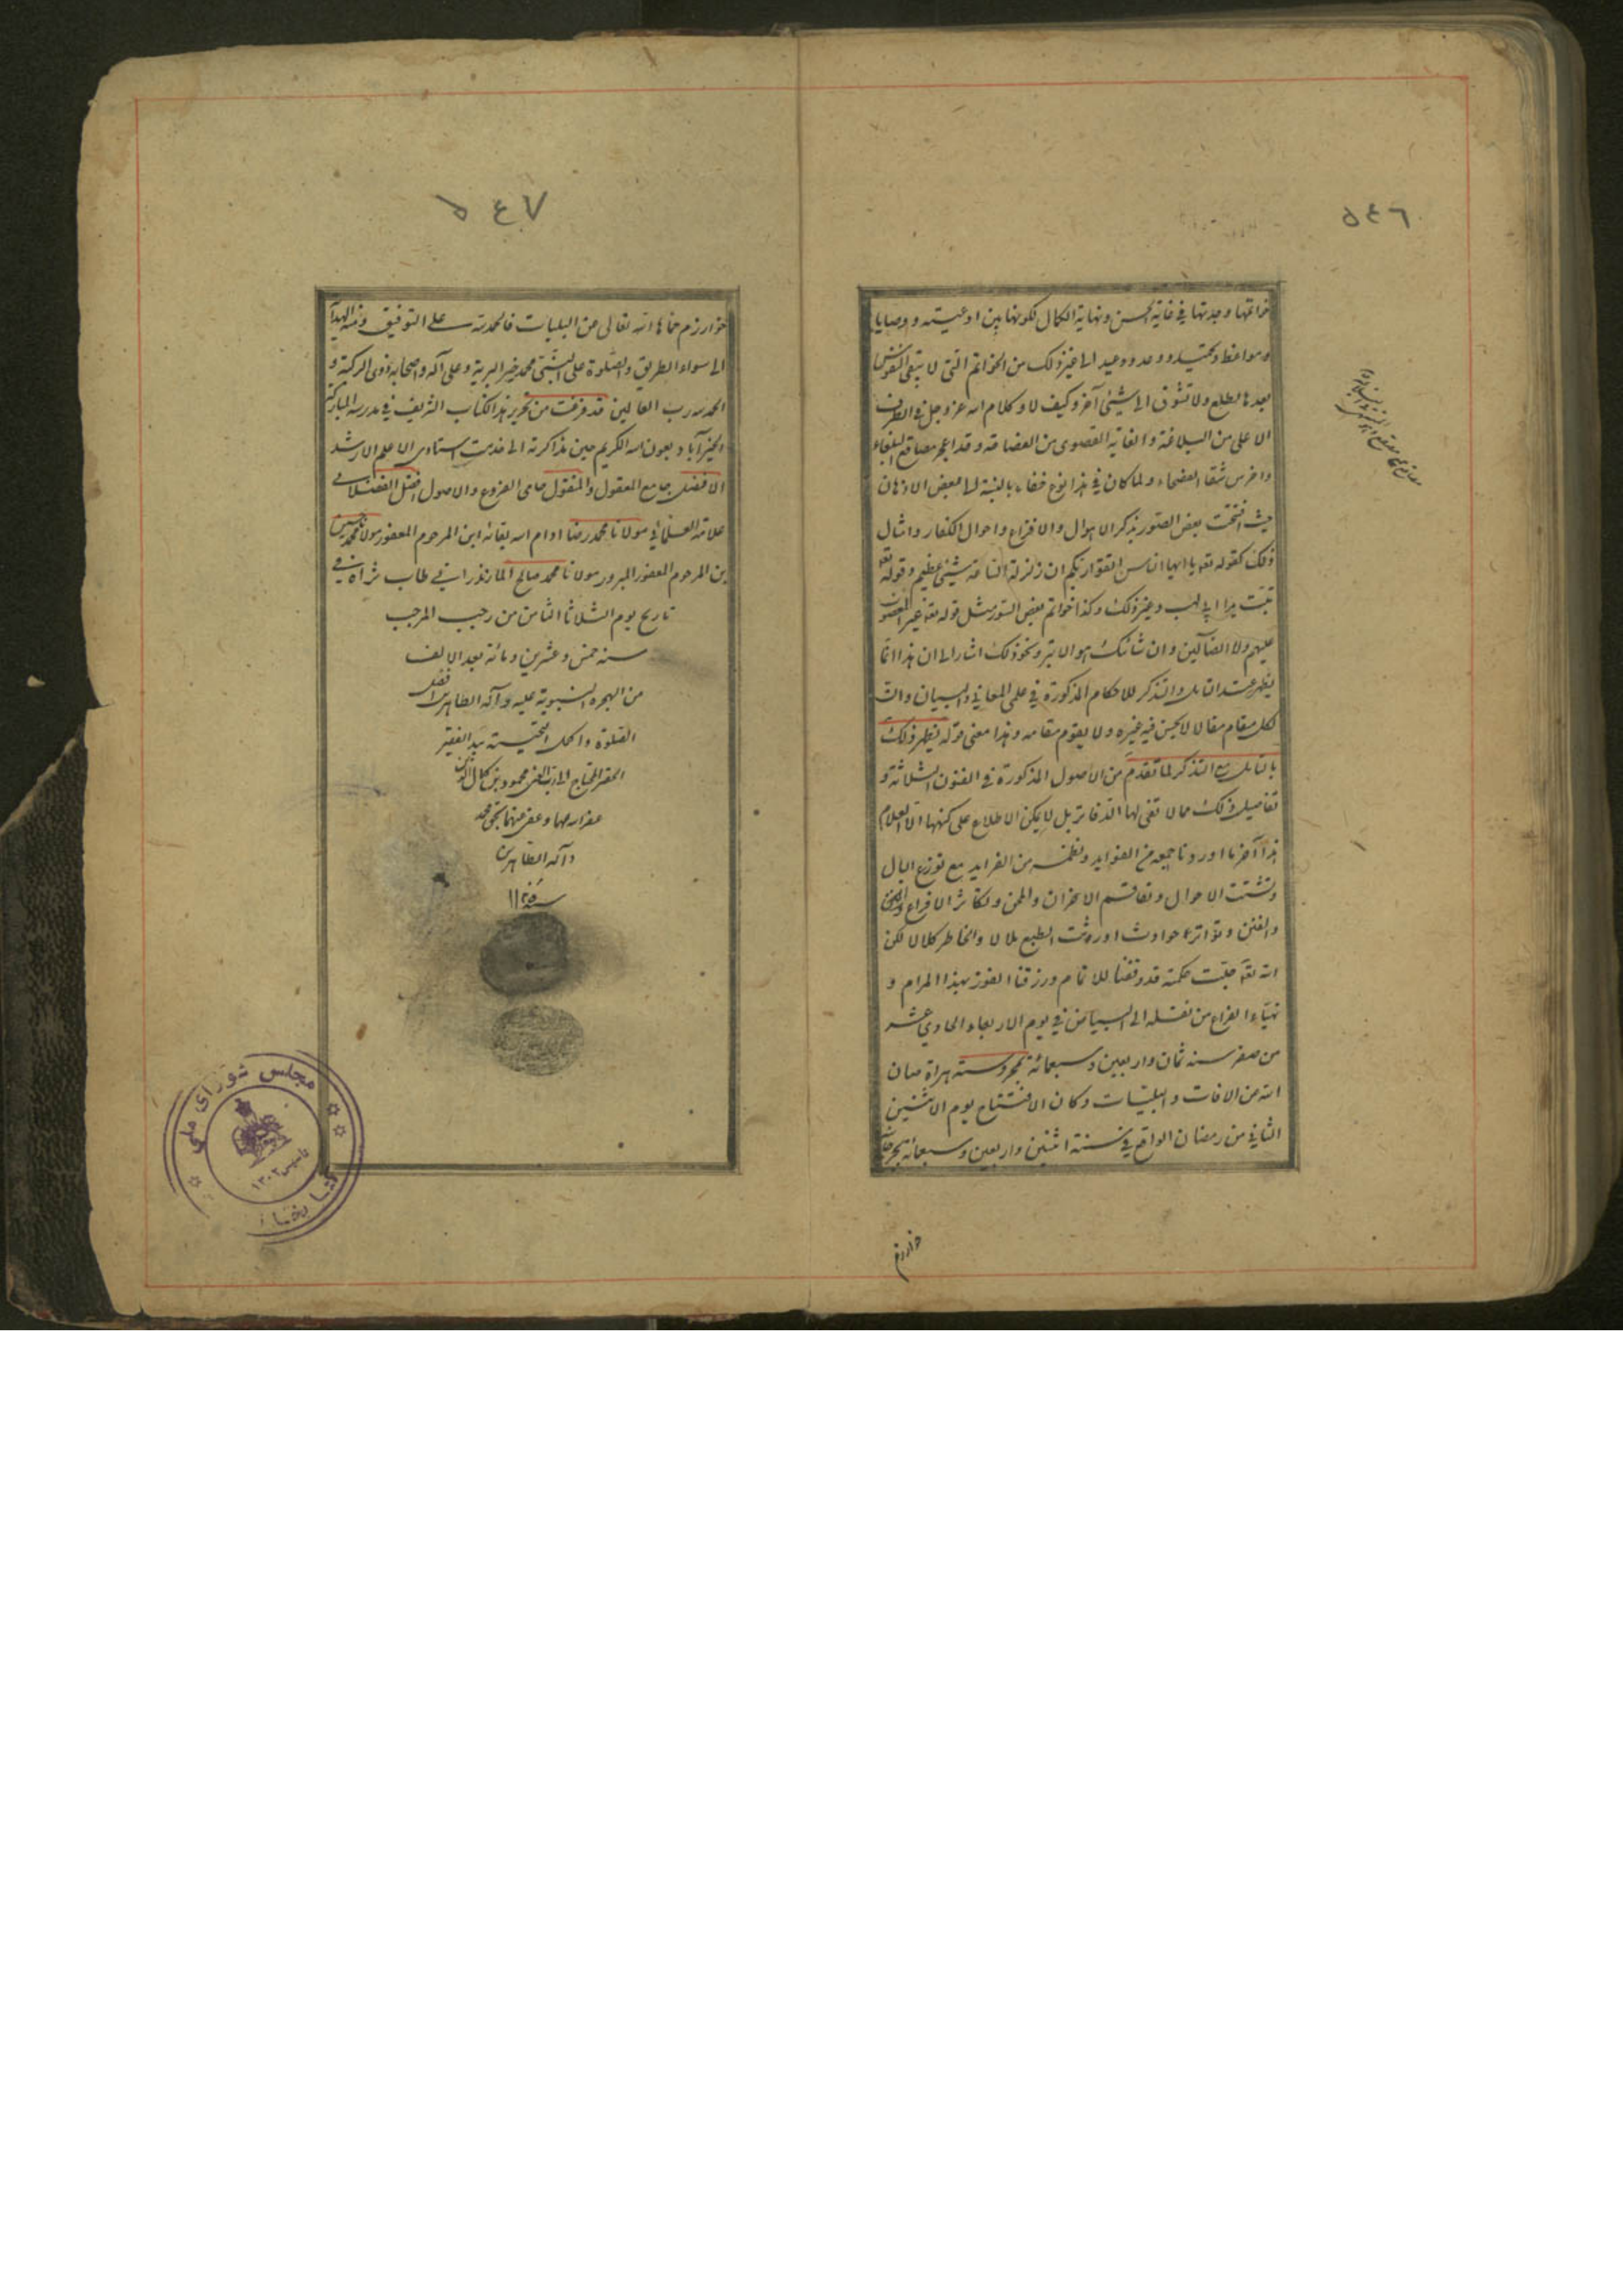 ٥٤٦
خواتمها وجدتها في غاية الحسن ونهاية الكمال لكونها بين ادعية ووصايا
ومواعظ وتحميد ووعد ووعيد الى غير ذلك من الخواتم التي لا تبقى للنفوس
بعدها تطلع ولا تشوق الى شيء آخر وكيف لا وكلام الله عز وجل في الطرف
الاعلى من البلاغة والغاية القصوى من الفصاحة وقد اعجز مصاقع البلغاء
واخرس شقاشق الفصحاء ولما كان في هذا نوع خفاء بالنسبة الى بعض الاذهان
حيث افتتحت بعض السور بذكر الاهوال والافزاع واحوال الكفار وامثال
ذلك كقوله تعه يا ايها الناس اتقوا ربكم ان زلزلة الساعة شيئ عظيم وقوله تعه
تبت يدا ابي لهب وغير ذلك وكذا خواتم بعض السور مثل قوله تعه غير المغضوب
عليهم ولا الضآلين وان شانئك هو الابتر ونحو ذلك اشار الى ان هذا انما
يظهر عند التامل والتذكر للاحكام المذكورة في علمي المعاني والبيان وان
لكل مقام مقالا لا يحسن فيه غيره ولا يقوم مقامه وهذا معنى قوله يظهر ذلك
بالتامل مع التذكر لما تقدم من الاصول المذكورة في الفنون الثلاثة و
تفاصيل ذلك مما لا تفي لها الدفاتر بل لا يمكن الاطلاع على كنهها الا لعلام
هذا آخر ما اوردنا جمعه من الفوايد ونظمه من الفرايد مع توزع البال
وتشتت الاحوال وتفاقم الاحزان والمحن وتكاثر الافزاع
والفتن وتواتر حوادث اورثت الطبع ملالا والخاطر كلالا لكن
الله تعه جلت حكمته قد وفقنا للاتمام ورزقنا الفوز بهذا المرام و
تهياء الفراغ من نقله الى البياض في يوم الاربعاء الحادي عشر
من صفر سنه ثمان واربعين وسبعمائة بمحروسته هراة صان
الله من الافات والبليات وكان الافتتاح يوم الاثنين
الثاني من رمضان الواقع في سنة اثنين واربعين وسبعمائة بجرجانية
خوارزم
٥٤٧
خوارزم حماها الله تعالى من البليات فالحمد لله على التوفيق ومنه الهداية
الى سواء الطريق والصلوة على النبي محمد خير البرية وعلى آله واصحابه ذوى الزكية و
الحمد لله رب العالمين قد فرغت من تحرير هذا الكتاب الشريف في مدرسه المباركة
الخيرآباد بعون الله الكريم حين مذاكرته الى خدمت استادى الاعلم الارشد
الافضل جامع المعقول والمنقول حامى الفروع والاصول افضل الفضلائي
علامة العلمائي مولانا محمد رضا ادام الله بقائه ابن المرحوم المغفور مولانا محمد حسين
بن المرحوم المغفور المبرور مولانا محمد صالح المازندراني طاب ثراه في
تاريخ يوم الثلاثا الثامن من رجب المرجب
سنه خمس وعشرين ومائة بعد الالف
من الهجرة النبوية عليه وآله الطاهرين افضل
الصلوة واكمل التحية بيد الفقير
الحقير المحتاج الى رب الغنى محمود بن كمال الدين
غفر الله لهما وعفى عنهما بحق محمد
وآله الطاهرين
سنة ١١٢٥
مجلس شورای ملی
تاسیس ۱۳۰۲
کتابخانه